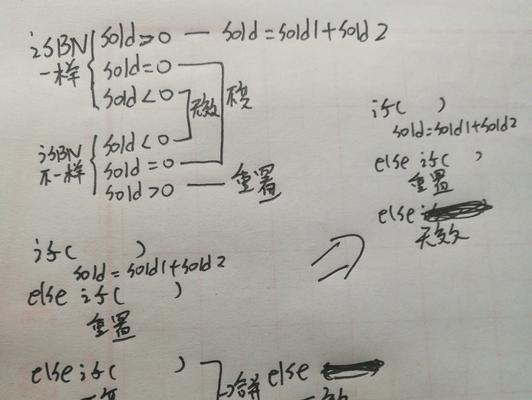 isBN 一样 { sold>0 — sold=sold1+sold2
sold=0
sold<0
无效
不变
isBN 不一样 { sold<0
sold=0
sold>0 — 重置
if( )
sold=sold1+sold2
else if( )
重置
else if( )
合并 else
if( )
sold=sold1+sold2
else if( )
重置
else
无效